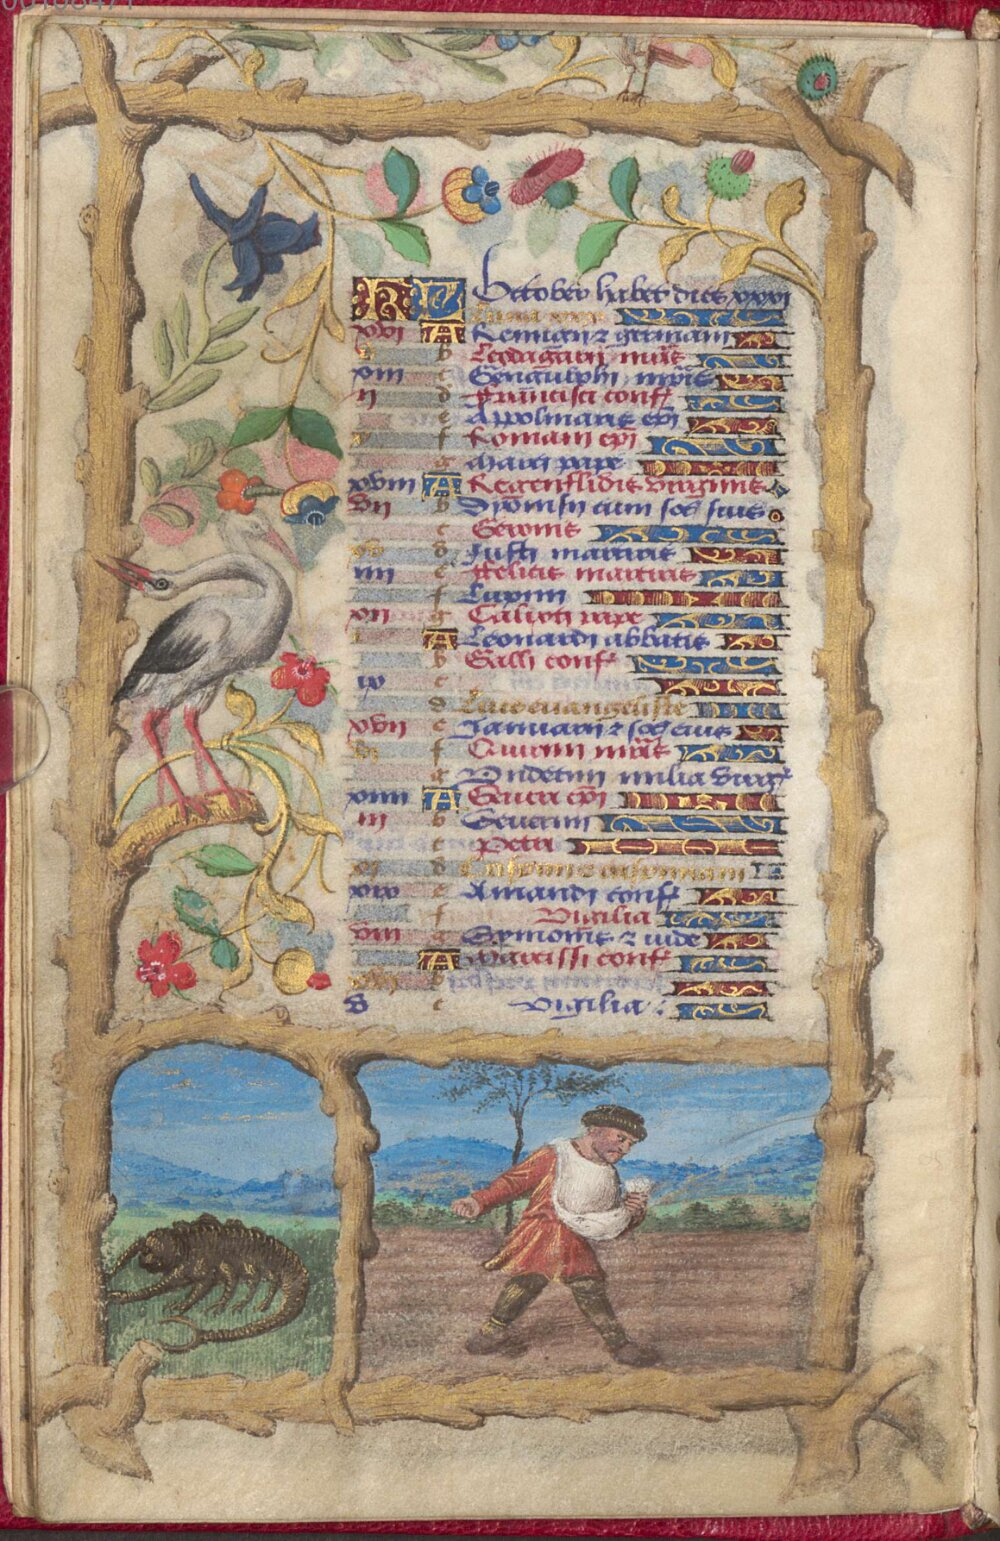 KL October habet dies xxxi
Luna xxx
xvi A Remigii z germani
b Leodagarii mris
xiii c Gengulphi mris
ii d Francisci conf
e Appolinaris epi
f Romani epi
g Marci pape
xviii A Regenflidis virginis
vii b Dyonisii cum soc suis
c Gereonis
d Justi martiris
iiii e Felicis martiris
f Lupini
xii g Calixti pape
i A Leonardi abbatis
b Galli conf
ix c
d Luce evangeliste
xvii e Januarii z soc eius
vi f Quirini mris
g Undecim milia virg
xiiii A Severi epi
iii b Severini
c Petri
xi d Crispini crispiniani
xix e Amandi conf
f Vigilia
viii g Symonis z iude
A Narcissi conf
b
v c Vigilia